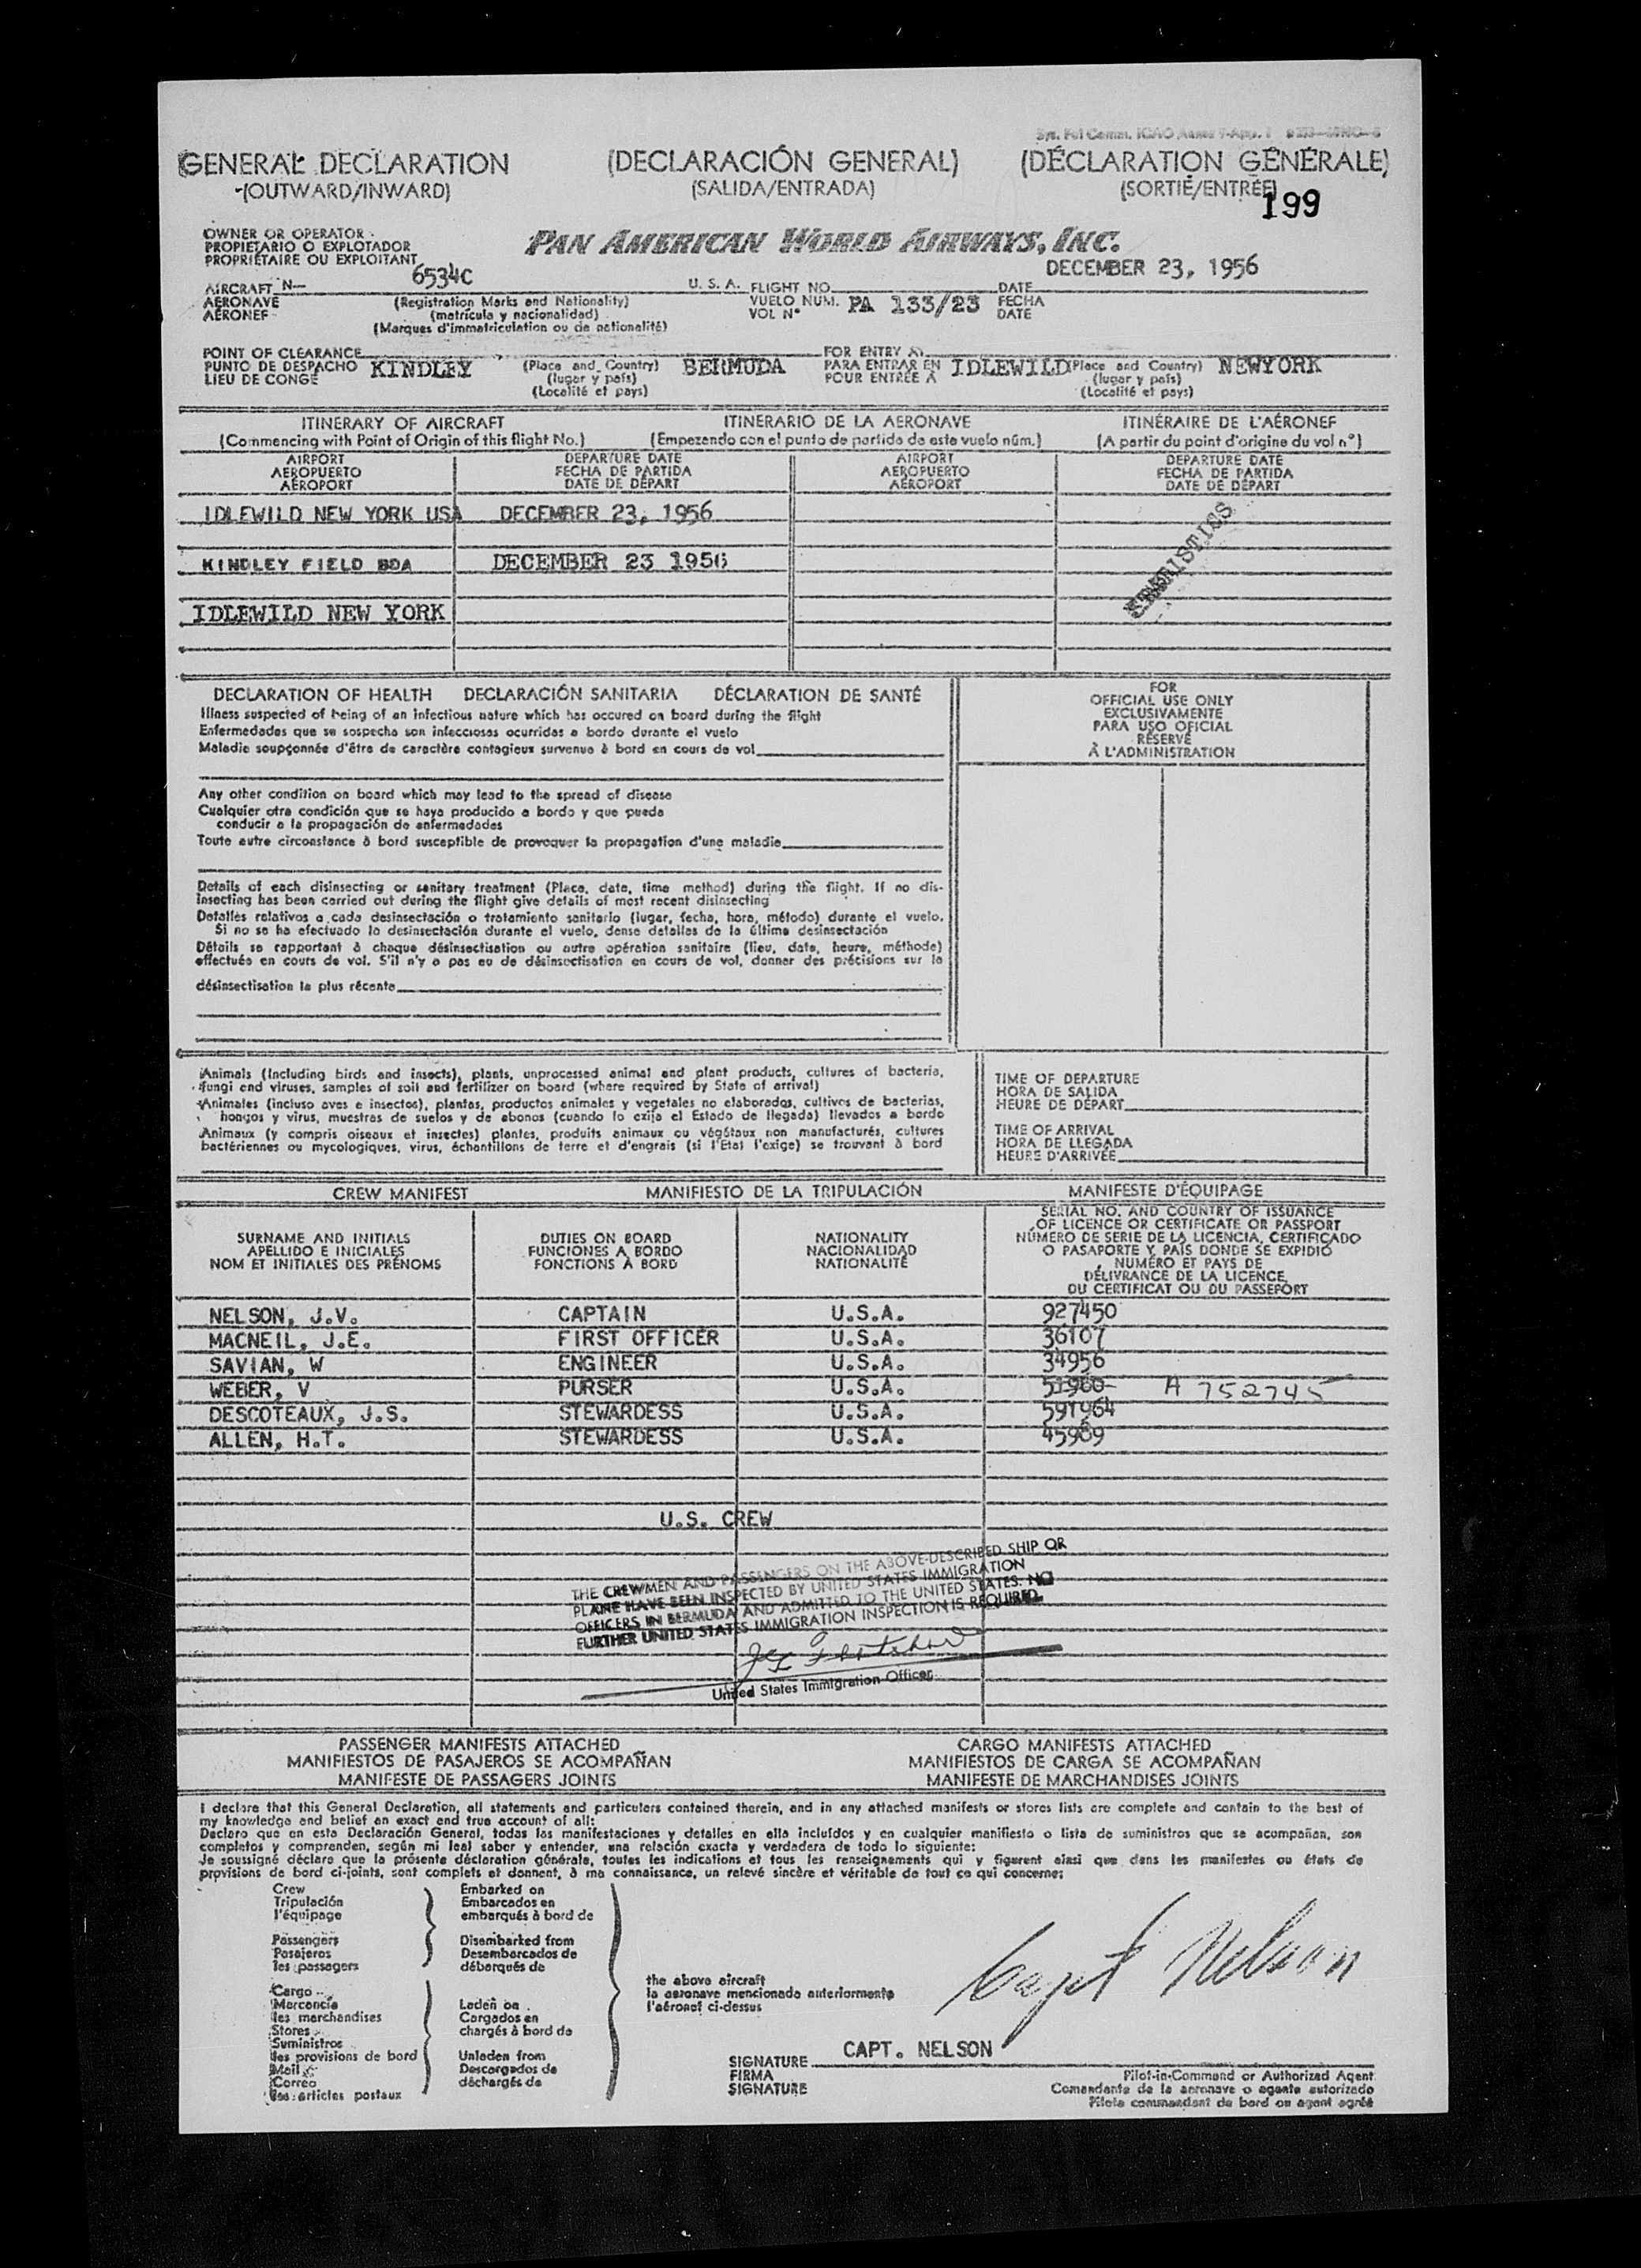 GENERAL DECLARATION (DECLARACIÓN GENERAL) (DÉCLARATION GÉNÉRALE)
(OUTWARD/INWARD) (SALIDA/ENTRADA) (SORTIE/ENTRÉE)
199
OWNER OR OPERATOR
PROPIETARIO O EXPLOTADOR
PROPRIÉTAIRE OU EXPLOITANT
PAN AMERICAN WORLD AIRWAYS, INC.
AIRCRAFT N— 6534C U. S. A. FLIGHT NO. DATE DECEMBER 23, 1956
AERONAVE (Registration Marks and Nationality) VUELO NUM. PA 133/23 FECHA
AÉRONEF (matrícula y nacionalidad) VOL N° DATE
(Marques d'immatriculation ou de nationalité)
POINT OF CLEARANCE FOR ENTRY AT
PUNTO DE DESPACHO KINDLEY (Place and Country) BERMUDA PARA ENTRAR EN IDLEWILD (Place and Country) NEWYORK
LIEU DE CONGÉ (lugar y país) POUR ENTRÉE À (lugar y país)
(Localité et pays) (Localité et pays)
ITINERARY OF AIRCRAFT ITINERARIO DE LA AERONAVE ITINÉRAIRE DE L'AÉRONEF
(Commencing with Point of Origin of this flight No.) (Empezando con el punto de partida de este vuelo núm.) (A partir du point d'origine du vol n°)
AIRPORT DEPARTURE DATE AIRPORT DEPARTURE DATE
AEROPUERTO FECHA DE PARTIDA AEROPUERTO FECHA DE PARTIDA
AÉROPORT DATE DE DÉPART AÉROPORT DATE DE DÉPART
IDLEWILD NEW YORK USA DECEMBER 23, 1956
KINDLEY FIELD BDA DECEMBER 23 1956
IDLEWILD NEW YORK
DECLARATION OF HEALTH DECLARACIÓN SANITARIA DÉCLARATION DE SANTÉ
Illness suspected of being of an infectious nature which has occured on board during the flight
Enfermedades que se sospecha son infecciosas ocurridas a bordo durante el vuelo
Maladie soupçonnée d'être de caractère contagieux survenue à bord en cours de vol
Any other condition on board which may lead to the spread of disease
Cualquier otra condición que se haya producido a bordo y que pueda
conducir a la propagación de enfermedades
Toute autre circonstance à bord susceptible de provoquer la propagation d'une maladie
Details of each disinsecting or sanitary treatment (Place, date, time method) during the flight. If no dis-
insecting has been carried out during the flight give details of most recent disinsecting
Detalles relativos a cada desinsectación o tratamiento sanitario (lugar, fecha, hora, método) durante el vuelo.
Si no se ha efectuado la desinsectación durante el vuelo, dense detalles de la última desinsectación
Détails se rapportant à chaque désinsectisation ou autre opération sanitaire (lieu, date, heure, méthode)
effectuée en cours de vol. S'il n'y a pas eu de désinsectisation en cours de vol, donner des précisions sur la
désinsectisation la plus récente
FOR
OFFICIAL USE ONLY
EXCLUSIVAMENTE
PARA USO OFICIAL
RÉSERVÉ
À L'ADMINISTRATION
Animals (Including birds and insects), plants, unprocessed animal and plant products, cultures of bacteria,
fungi and viruses, samples of soil and fertilizer on board (where required by State of arrival)
Animales (incluso aves e insectos), plantas, productos animales y vegetales no elaborados, cultivos de bacterias,
hongos y virus, muestras de suelos y de abonos (cuando lo exija el Estado de llegada) llevados a bordo
Animaux (y compris oiseaux et insectes) plantes, produits animaux ou végétaux non manufacturés, cultures
bactériennes ou mycologiques, virus, échantillons de terre et d'engrais (si l'Etat l'exige) se trouvant à bord
TIME OF DEPARTURE
HORA DE SALIDA
HEURE DE DÉPART
TIME OF ARRIVAL
HORA DE LLEGADA
HEURE D'ARRIVÉE
CREW MANIFEST MANIFIESTO DE LA TRIPULACIÓN MANIFESTE D'ÉQUIPAGE
SURNAME AND INITIALS
APELLIDO E INICIALES
NOM ET INITIALES DES PRÉNOMS
DUTIES ON BOARD
FUNCIONES A BORDO
FONCTIONS À BORD
NATIONALITY
NACIONALIDAD
NATIONALITÉ
SERIAL NO. AND COUNTRY OF ISSUANCE
OF LICENCE OR CERTIFICATE OR PASSPORT
NÚMERO DE SERIE DE LA LICENCIA, CERTIFICADO
O PASAPORTE Y PAÍS DONDE SE EXPIDIÓ
NUMÉRO ET PAYS DE
DÉLIVRANCE DE LA LICENCE,
DU CERTIFICAT OU DU PASSEPORT
NELSON, J.V. CAPTAIN U.S.A. 927450
MACNEIL, J.E. FIRST OFFICER U.S.A. 36107
SAVIAN, W ENGINEER U.S.A. 34956
WEBER, V PURSER U.S.A. 51960 A 752745
DESCOTEAUX, J.S. STEWARDESS U.S.A. 591964
ALLEN, H.T. STEWARDESS U.S.A.
U.S. CREW
THE CREWMEN AND PASSENGERS ON THE ABOVE-DESCRIBED SHIP OR
PLANE HAVE BEEN INSPECTED BY UNITED STATES IMMIGRATION
OFFICERS IN BERMUDA AND ADMITTED TO THE UNITED STATES. NO
FURTHER UNITED STATES IMMIGRATION INSPECTION IS REQUIRED.
United States Immigration Officer
PASSENGER MANIFESTS ATTACHED CARGO MANIFESTS ATTACHED
MANIFIESTOS DE PASAJEROS SE ACOMPAÑAN MANIFIESTOS DE CARGA SE ACOMPAÑAN
MANIFESTE DE PASSAGERS JOINTS MANIFESTE DE MARCHANDISES JOINTS
I declare that this General Declaration, all statements and particulars contained therein, and in any attached manifests or stores lists are complete and contain to the best of
my knowledge and belief an exact and true account of all:
Declaro que en esta Declaración General, todas las manifestaciones y detalles en ella incluídos y en cualquier manifiesto o lista de suministros que se acompañan, son
completos y comprenden, según mi leal saber y entender, una relación exacta y verdadera de todo lo siguiente:
Je soussigné déclare que la présente déclaration générale, toutes les indications et tous les renseignements qui y figurent ainsi que dans les manifestes ou états de
provisions de bord ci-joints, sont complets et donnent, à ma connaissance, un relevé sincère et véritable de tout ce qui concerne:
Crew
Tripulación
l'équipage
Passengers
Pasajeros
les passagers
Cargo
Mercancía
les merchandises
Stores
Suministros
les provisions de bord
Mail
Correo
les articles postaux
Embarked on
Embarcados en
embarqués à bord de
Disembarked from
Desembarcados de
débarqués de
Laden on
Cargados en
chargés à bord de
Unladen from
Descargados de
déchargés de
the above aircraft
la aeronave mencionada anteriormente
l'aéronef ci-dessus
Capt Nelson
SIGNATURE CAPT. NELSON
FIRMA
SIGNATURE
Pilot-in-Command or Authorized Agent
Comandante de la aeronave o agente autorizado
Pilote commandant de bord ou agent agréé